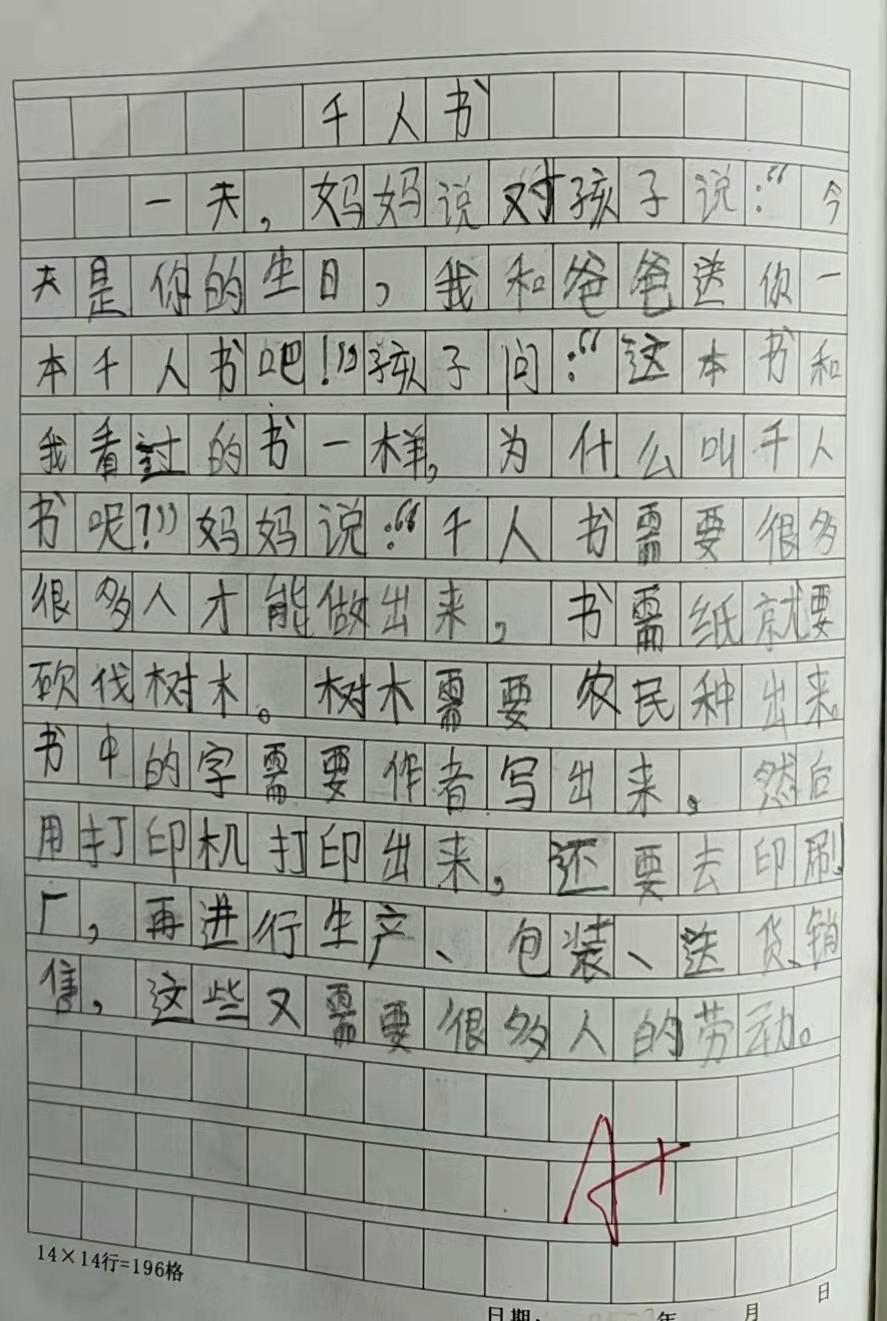 千人书
一天，妈妈说对孩子说：“今
天是你的生日，我和爸爸送你一
本千人书吧！”孩子问：“这本书和
我看过的书一样，为什么叫千人
书呢？”妈妈说：“千人书需要很多
很多人才能做出来，书需纸就要
砍伐树木。树木需要农民种出来。
书中的字需要作者写出来，然后
用打印机打印出来，还要去印刷
厂，再进行生产、包装、送货、销
售，这些又需要很多人的劳动。
A+
14×14行=196格
日期： 年 月 日